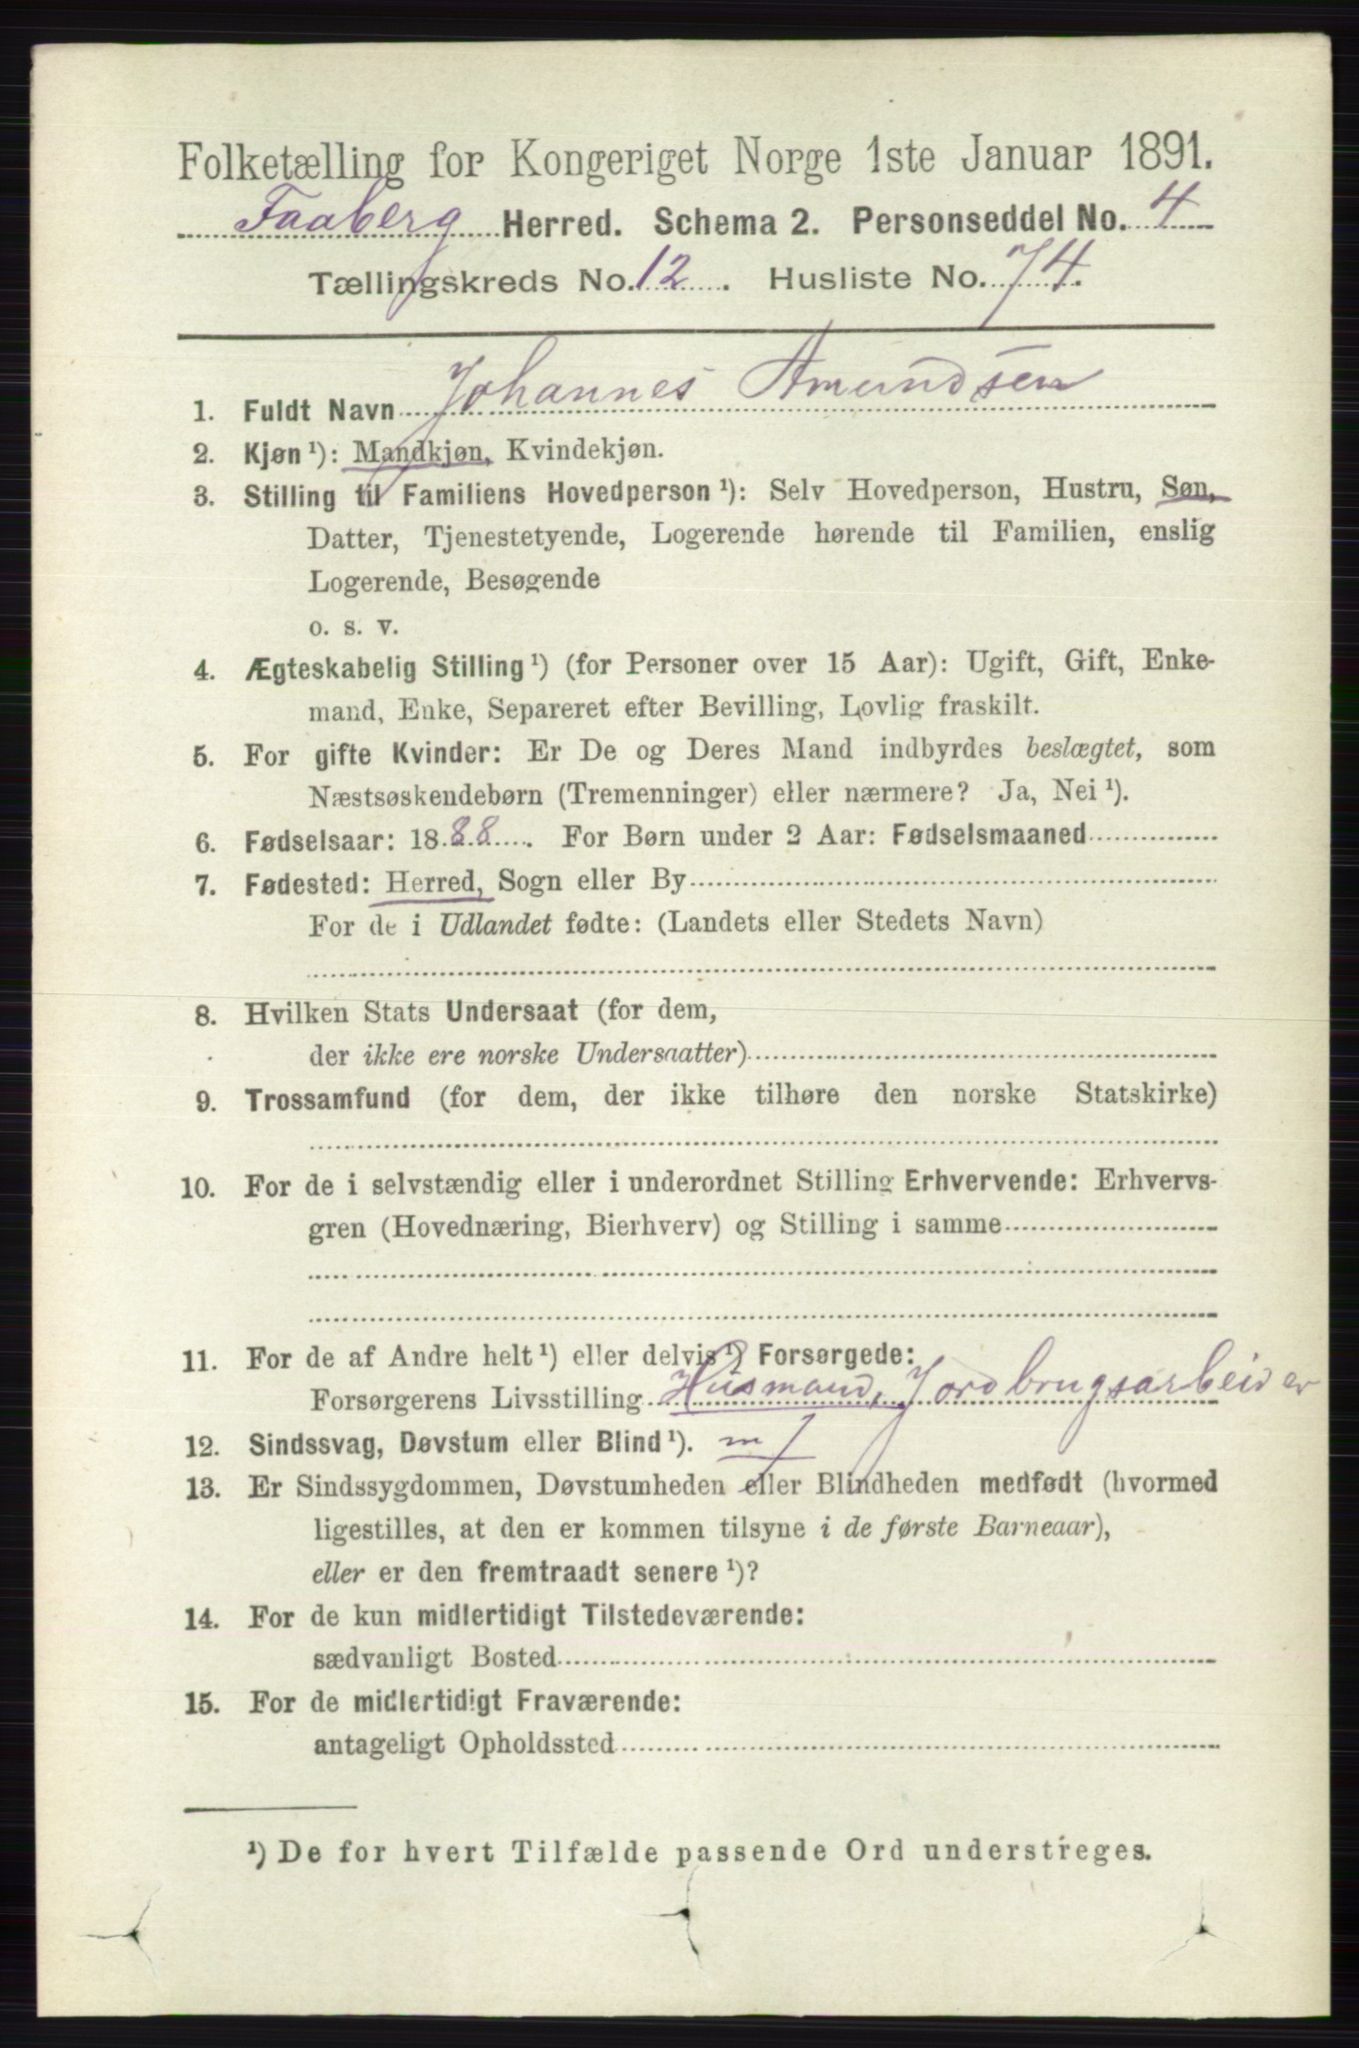 Folketælling for Kongeriget Norge 1ste Januar 1891.
Faaberg Herred. Schema 2. Personseddel No. 4
Tællingskreds No. 12. Husliste No. 74.
1. Fuldt Navn Johannes Amundsen
2. Kjøn ¹): Mandkjøn, Kvindekjøn.
3. Stilling til Familiens Hovedperson ¹): Selv Hovedperson, Hustru, Søn,
Datter, Tjenestetyende, Logerende hørende til Familien, enslig
Logerende, Besøgende
o. s. v.
4. Ægteskabelig Stilling ¹) (for Personer over 15 Aar): Ugift, Gift, Enke-
mand, Enke, Separeret efter Bevilling, Lovlig fraskilt.
5. For gifte Kvinder: Er De og Deres Mand indbyrdes beslægtet, som
Næstsøskendebørn (Tremenninger) eller nærmere? Ja, Nei ¹).
6. Fødselsaar: 1888. For Børn under 2 Aar: Fødselsmaaned
7. Fødested: Herred, Sogn eller By
For de i Udlandet fødte: (Landets eller Stedets Navn)
8. Hvilken Stats Undersaat (for dem,
der ikke ere norske Undersaatter)
9. Trossamfund (for dem, der ikke tilhøre den norske Statskirke)
10. For de i selvstændig eller i underordnet Stilling Erhvervende: Erhvervs-
gren (Hovednæring, Bierhverv) og Stilling i samme
11. For de af Andre helt ¹) eller delvis ¹) Forsørgede:
Forsørgerens Livsstilling Husmand, Jordbrugsarbeider
12. Sindssvag, Døvstum eller Blind ¹).
13. Er Sindssygdommen, Døvstumheden eller Blindheden medfødt (hvormed
ligestilles, at den er kommen tilsyne i de første Barneaar),
eller er den fremtraadt senere ¹)?
14. For de kun midlertidigt Tilstedeværende:
sædvanligt Bosted
15. For de midlertidigt Fraværende:
antageligt Opholdssted
¹) De for hvert Tilfælde passende Ord understreges.